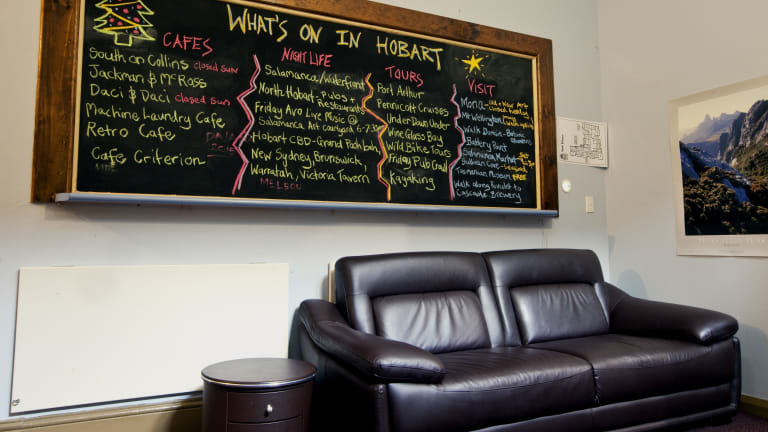 WHAT'S ON IN HOBART
CAFES
South on Collins closed sun
Jackman & McRoss
Daci & Daci closed sun
Machine Laundry Cafe
Retro Cafe
Cafe Criterion
NIGHT LIFE
Salamanca/Waterfront
North Hobart-Pubs +
Restaurants
Friday Avo Live Music @
Salamanca Art courtyard 6-7:30
Hobart CBD-Grand Poobah,
New Sydney, Brunswick,
Warratah, Victoria Tavern
TOURS
Port Arthur
Pennicott Cruises
Under Down Under
Wine Glass Bay
Wild Bike Tours
Friday Pub Crawl
Kayaking
VISIT
Mona-
Mt Wellington
Walk Domain-Botanic
Battery Point
Salamanca Market
Sullivans Cove-
Tasmanian Museum FREE
Walk along Rivulet to
Cascade Brewery